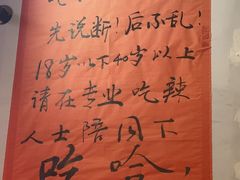 先说断！后不乱！
18岁以下40岁以上
请在专业吃辣
人士陪同下